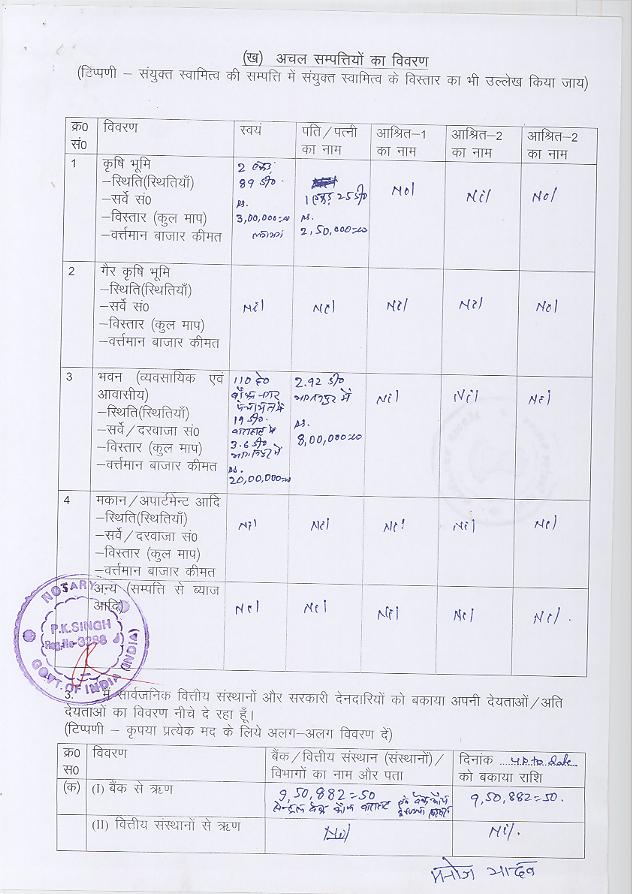 (ख) अचल सम्पत्तियों का विवरण
(टिप्पणी – संयुक्त स्वामित्व की सम्पति में संयुक्त स्वामित्व के विस्तार का भी उल्लेख किया जाय)
क्र0 सं0 विवरण स्वयं पति/पत्नी का नाम आश्रित–1 का नाम आश्रित–2 का नाम आश्रित–2 का नाम
1 कृषि भूमि
–स्थिति(स्थितियाँ)
–सर्वे सं0
–विस्तार (कुल माप)
–वर्त्तमान बाजार कीमत
2 एकड़
89 डी०
Rs.
3,00,000=00
1 एकड़ 25 डी०
Rs.
2,50,000=00
Nil Nil Nil
2 गैर कृषि भूमि
–स्थिति(स्थितियाँ)
–सर्वे सं0
–विस्तार (कुल माप)
–वर्त्तमान बाजार कीमत
Nil Nil Nil Nil Nil
3 भवन (व्यवसायिक एवं
आवासीय)
–स्थिति(स्थितियाँ)
–सर्वे/दरवाजा सं0
–विस्तार (कुल माप)
–वर्त्तमान बाजार कीमत
110
19 डी०
3.6 डी०
Rs.
20,00,000=00
2.92 डी०
में
Rs.
8,00,000=00
Nil Nil Nil
4 मकान/अपार्टमेन्ट आदि
–स्थिति(स्थितियाँ)
–सर्वे/दरवाजा सं0
–विस्तार (कुल माप)
–वर्त्तमान बाजार कीमत
Nil Nil Nil Nil Nil
अन्य (सम्पति से ब्याज
आदि)
Nil Nil Nil Nil Nil.
NOTARY
P.K.SINGH
Reg.No-3288
GOVT.OF INDIA (INDIA)
3. मैं सार्वजनिक वित्तीय संस्थानों और सरकारी देनदारियों को बकाया अपनी देयताओं/अति
देयताओं का विवरण नीचे दे रहा हूँ।
(टिप्पणी – कृपया प्रत्येक मद के लिये अलग–अलग विवरण दें)
क्र0 स0 विवरण बैंक/वित्तीय संस्थान (संस्थानों)/ विभागों का नाम और पता दिनाक up to date को बकाया राशि
(क) (I) बैंक से ऋण 9,50,882=50 9,50,882=50.
सेन्ट्रल बैंक ऑफ
(II) वित्तीय संस्थानों से ऋण Nil Nil.
मनोज यादव